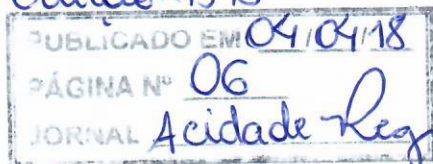 PUBLICADO EM 04/04/18
PÁGINA Nº 06
JORNAL Acidade Reg